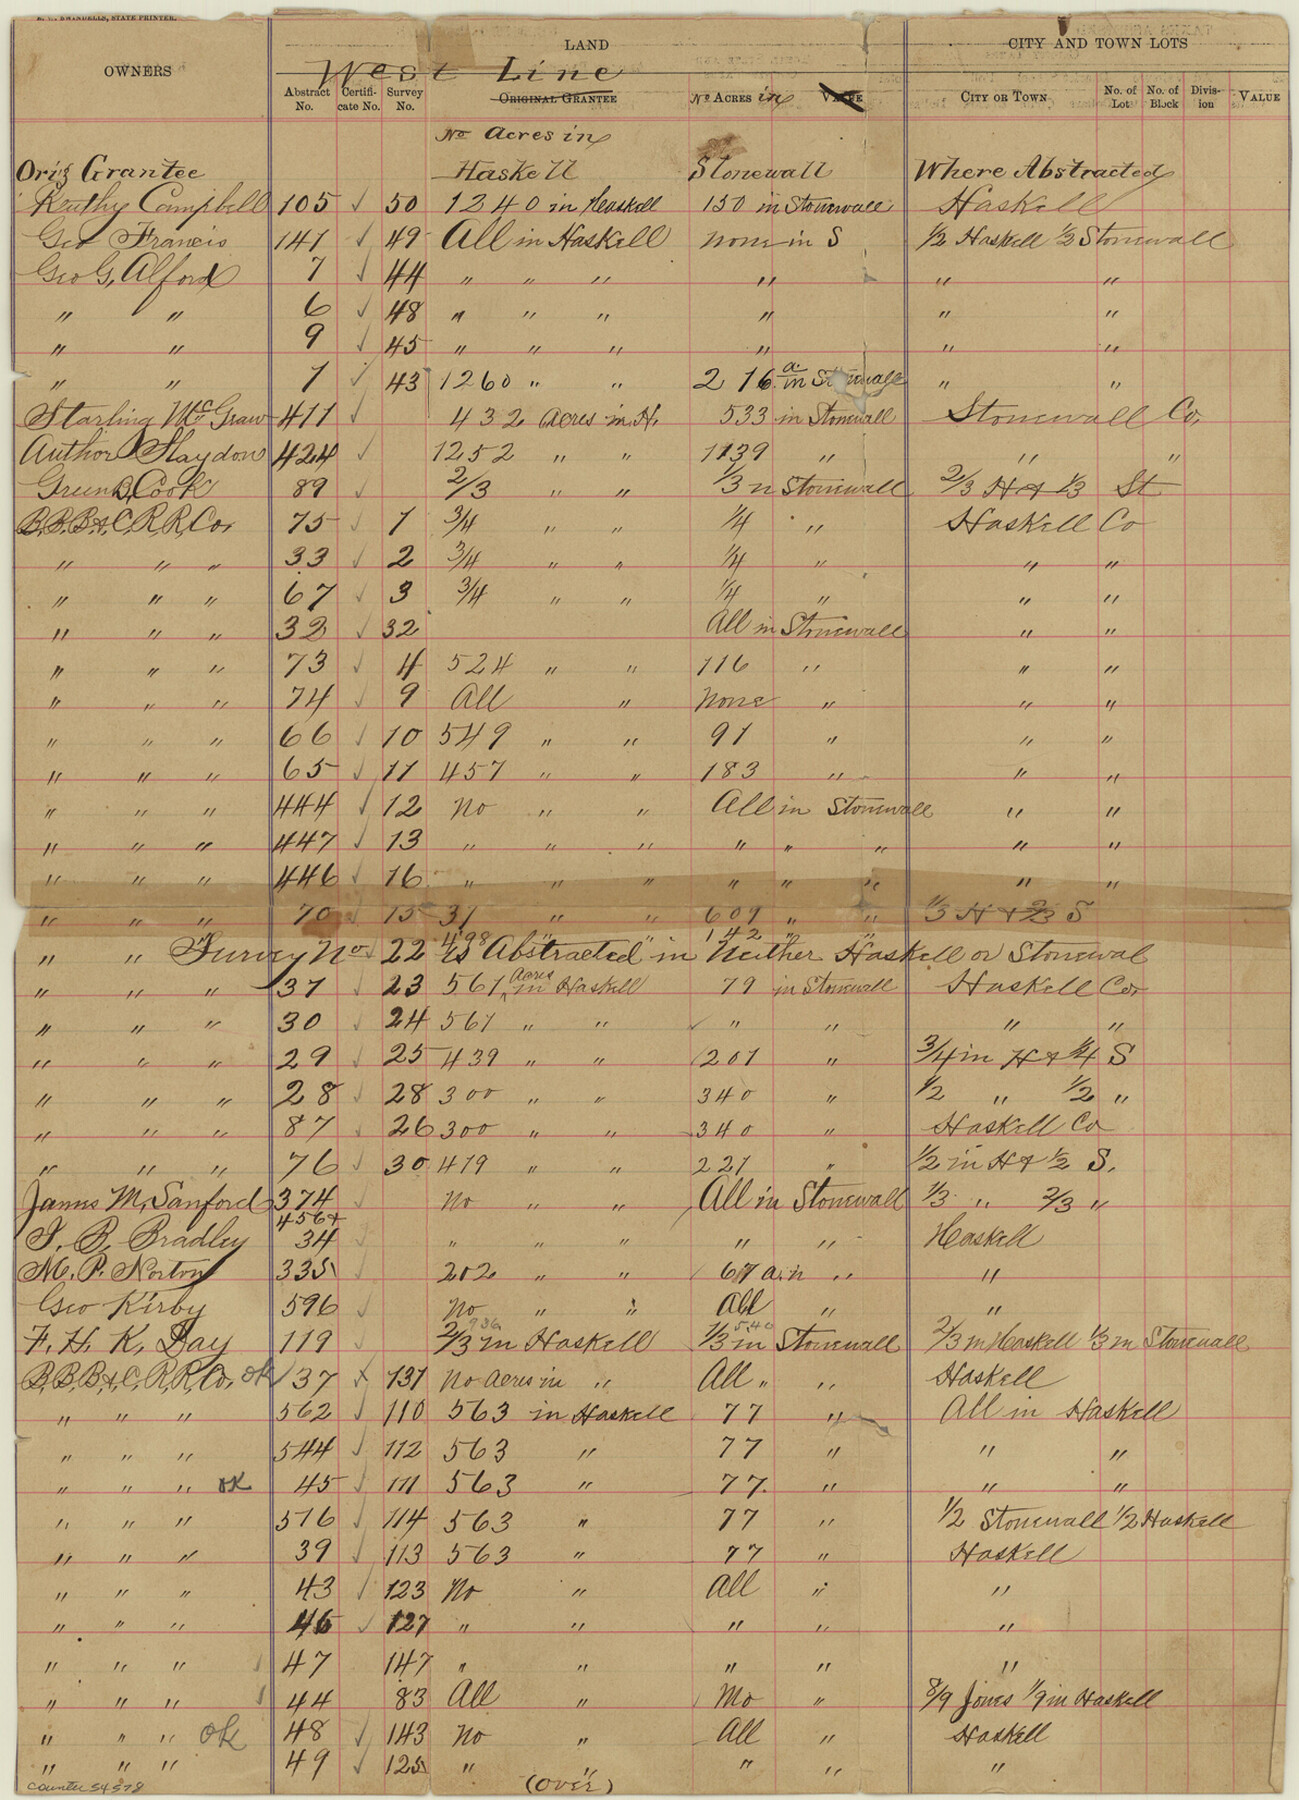 SWINDELLS, STATE PRINTER.
OWNERS LAND CITY AND TOWN LOTS
West Line
Abstract No. Certifi- cate No. Survey No. ORIGINAL GRANTEE No ACRES in VALUE CITY OR TOWN No. of Lot No. of Block Divis- ion VALUE
No Acres in
Orig Grantee Haskell Stonewall Where Abstracted
Ruthy Campbell 105 ✓ 50 1240 in Haskell 150 in Stonewall Haskell
Geo Francis 141 ✓ 49 All in Haskell none in S 1/2 Haskell 1/2 Stonewall
Geo G. Alford 7 ✓ 44 " " " " " "
" " 6 ✓ 48 " " " " " "
" " 9 ✓ 45 " " " " " "
" " 1 ✓ 43 1260 " " 216 a in Stonewall " "
Starling McGraw 411 432 Acres in H. 533 in Stonewall Stonewall Co.
Author Slaydon 424 1252 " " 1139 " " "
Green B. Cook 89 2/3 " " 1/3 n Stonewall 2/3 H & 1/3 St
B.B.B.&C.R.R.Co. 75 ✓ 1 3/4 " " 1/4 " Haskell Co
" " " 33 ✓ 2 3/4 " " 1/4 " " "
" " " 67 ✓ 3 3/4 " " 1/4 " " "
" " " 32 ✓ 32 All in Stonewall " "
" " " 73 ✓ 4 524 " " 116 " " "
" " " 74 ✓ 9 All " None " " "
" " " 66 ✓ 10 549 " " 91 " " "
" " " 65 ✓ 11 457 " " 183 " " "
" " " 444 ✓ 12 No " " All in Stonewall " "
" " " 447 ✓ 13 " " " " " " " "
" " " 446 ✓ 16 " " " " " " " "
" " " 70 15 31 " " 609 " " 1/3 H & 2/3 S
498 " " 142 " "
" " Survey No 22 is Abstracted in Neither Haskell or Stonewal
" " " 31 ✓ 23 561 Acres in Haskell 79 in Stonewall Haskell Co.
" " " 30 ✓ 24 561 " " ✓ " " " "
" " " 29 ✓ 25 439 " " 201 " 3/4 in H & 1/4 S
" " " 28 ✓ 28 300 " " 340 " 1/2 " 1/2 "
" " " 87 ✓ 26 300 " " 340 " Haskell Co
" " " 76 ✓ 30 419 " " 221 " 1/2 in H & 1/2 S.
James M. Sanford 374 ✓ No " " All in Stonewall 1/3 " 2/3 "
456+
T. B. Bradley 34 ✓ " " " " " Haskell
M. P. Norton 335 ✓ 202 " " 67 a.in " "
Geo Kirby 596 ✓ No " " All " "
936 540
F. H. K. Day 119 ✓ 2/3 in Haskell 1/3 in Stonewall 2/3 in Haskell 1/3 in Stonewall
B.B.B.&C.R.R.Co. ok ✓ 37 x 131 No Acres in " All " " Haskell
" " " 562 ✓ 110 563 in Haskell 77 " All in Haskell
" " " 544 ✓ 112 563 " 77 " " "
" " " ok 45 ✓ 111 563 " 77. " " "
" " " 516 ✓ 114 563 " 77 " 1/2 Stonewall 1/2 Haskell
" " " 39 ✓ 113 563 " 77 " Haskell
" " " 43 ✓ 123 No " All " "
" " " 46 ✓ 127 " " " " "
" " " ✓ 47 147 " " " " "
" " " ✓ 44 83 All " No " 8/9 Jones 1/9 in Haskell
" " " ok 48 ✓ 143 No " All " Haskell
" " " 49 ✓ 125 " " " " "
counter 54578 (Over)